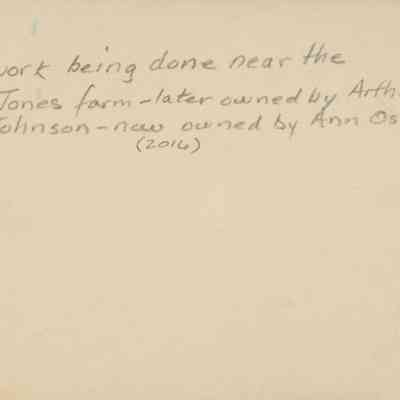 work being done near the
Jones farm - later owned by Arth
Johnson - now owned by Ann Os
(2016)